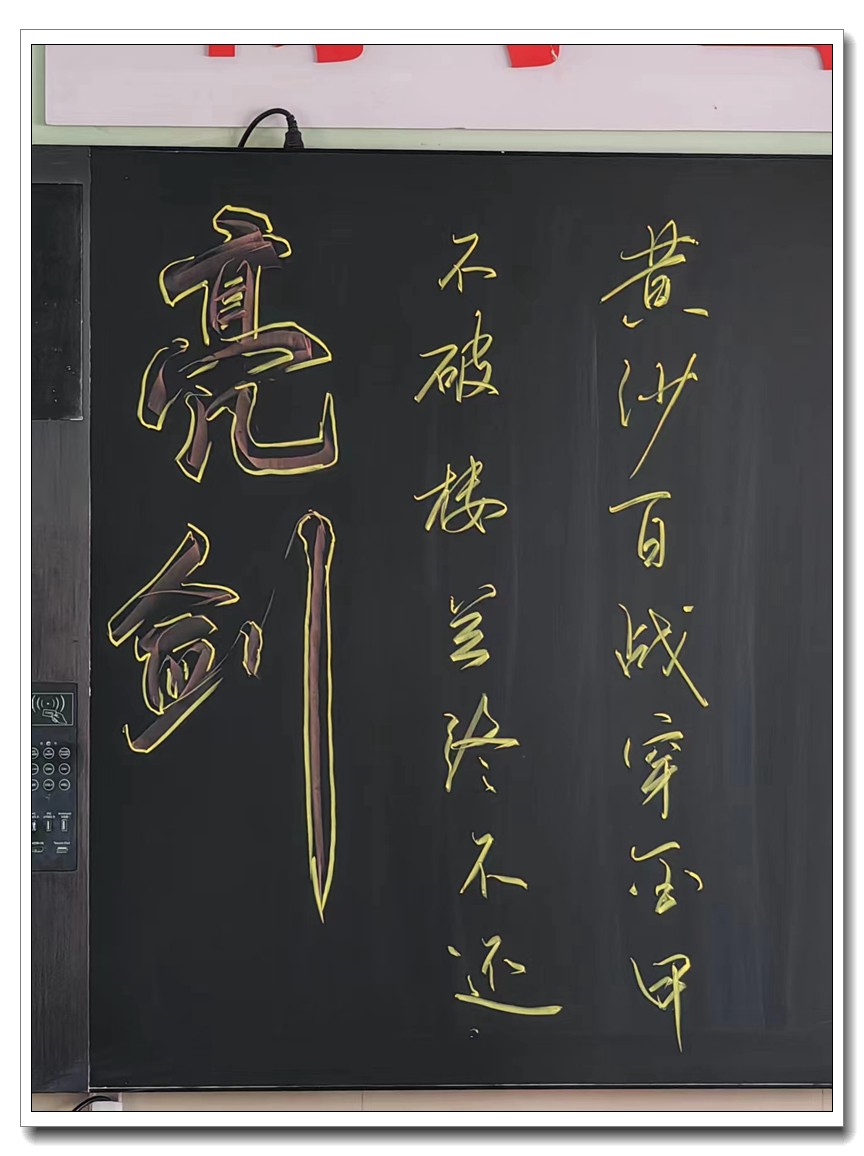 黄沙百战穿金甲
不破楼兰终不还
亮剑